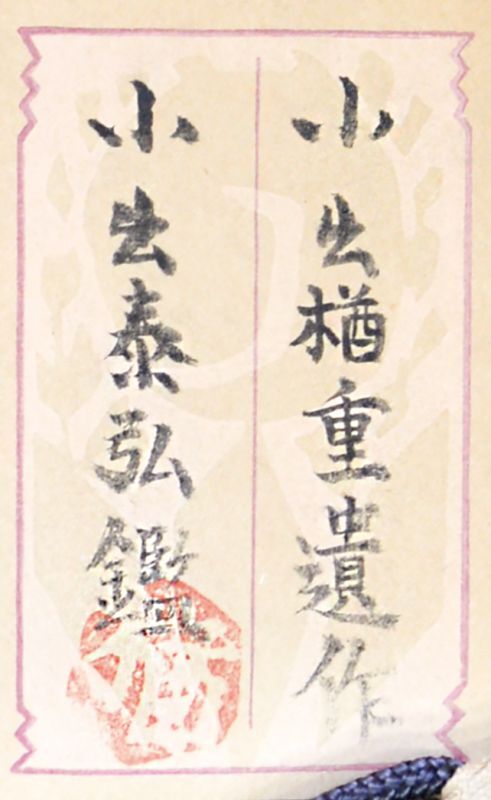 小出楢重遺作
小出泰弘鑑